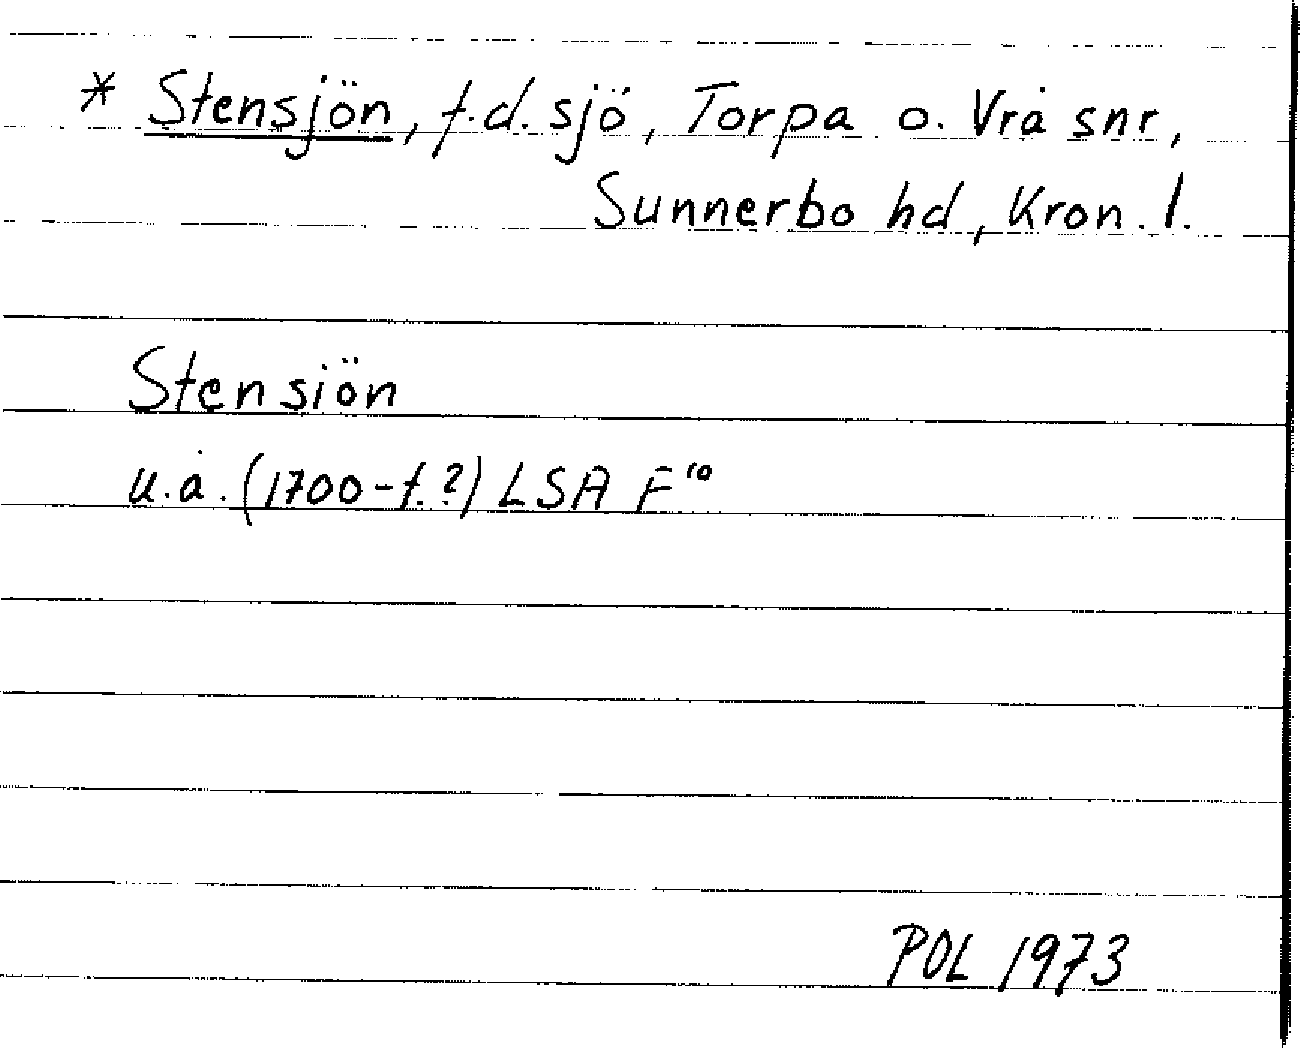 * Stensjön, f.d. sjö, Torpa o. Vrå snr,
Sunnerbo hd, Kron. l.
Stensiön
u.å. (1700-t.?) LSA F¹⁰
POL 1973